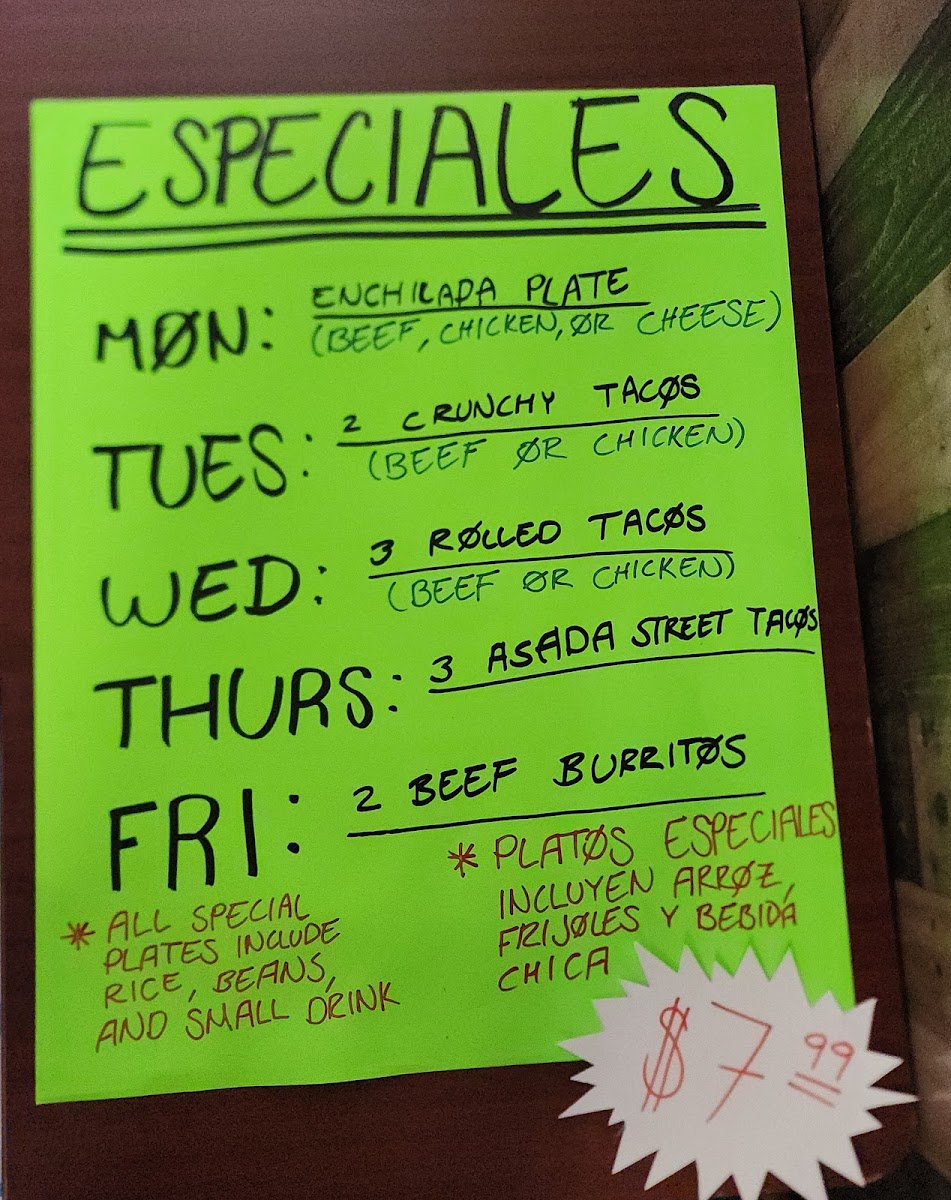 ESPECIALES
MØN: ENCHILADA PLATE
(BEEF, CHICKEN, ØR CHEESE)
TUES: 2 CRUNCHY TACØS
(BEEF ØR CHICKEN)
WED: 3 RØLLED TACØS
(BEEF ØR CHICKEN)
THURS: 3 ASADA STREET TACØS
FRI: 2 BEEF BURRITØS
* ALL SPECIAL
PLATES INCLUDE
RICE, BEANS,
AND SMALL DRINK
* PLATØS ESPECIALES
INCLUYEN ARRØZ,
FRIJØLES Y BEBIDA
CHICA
$7.99